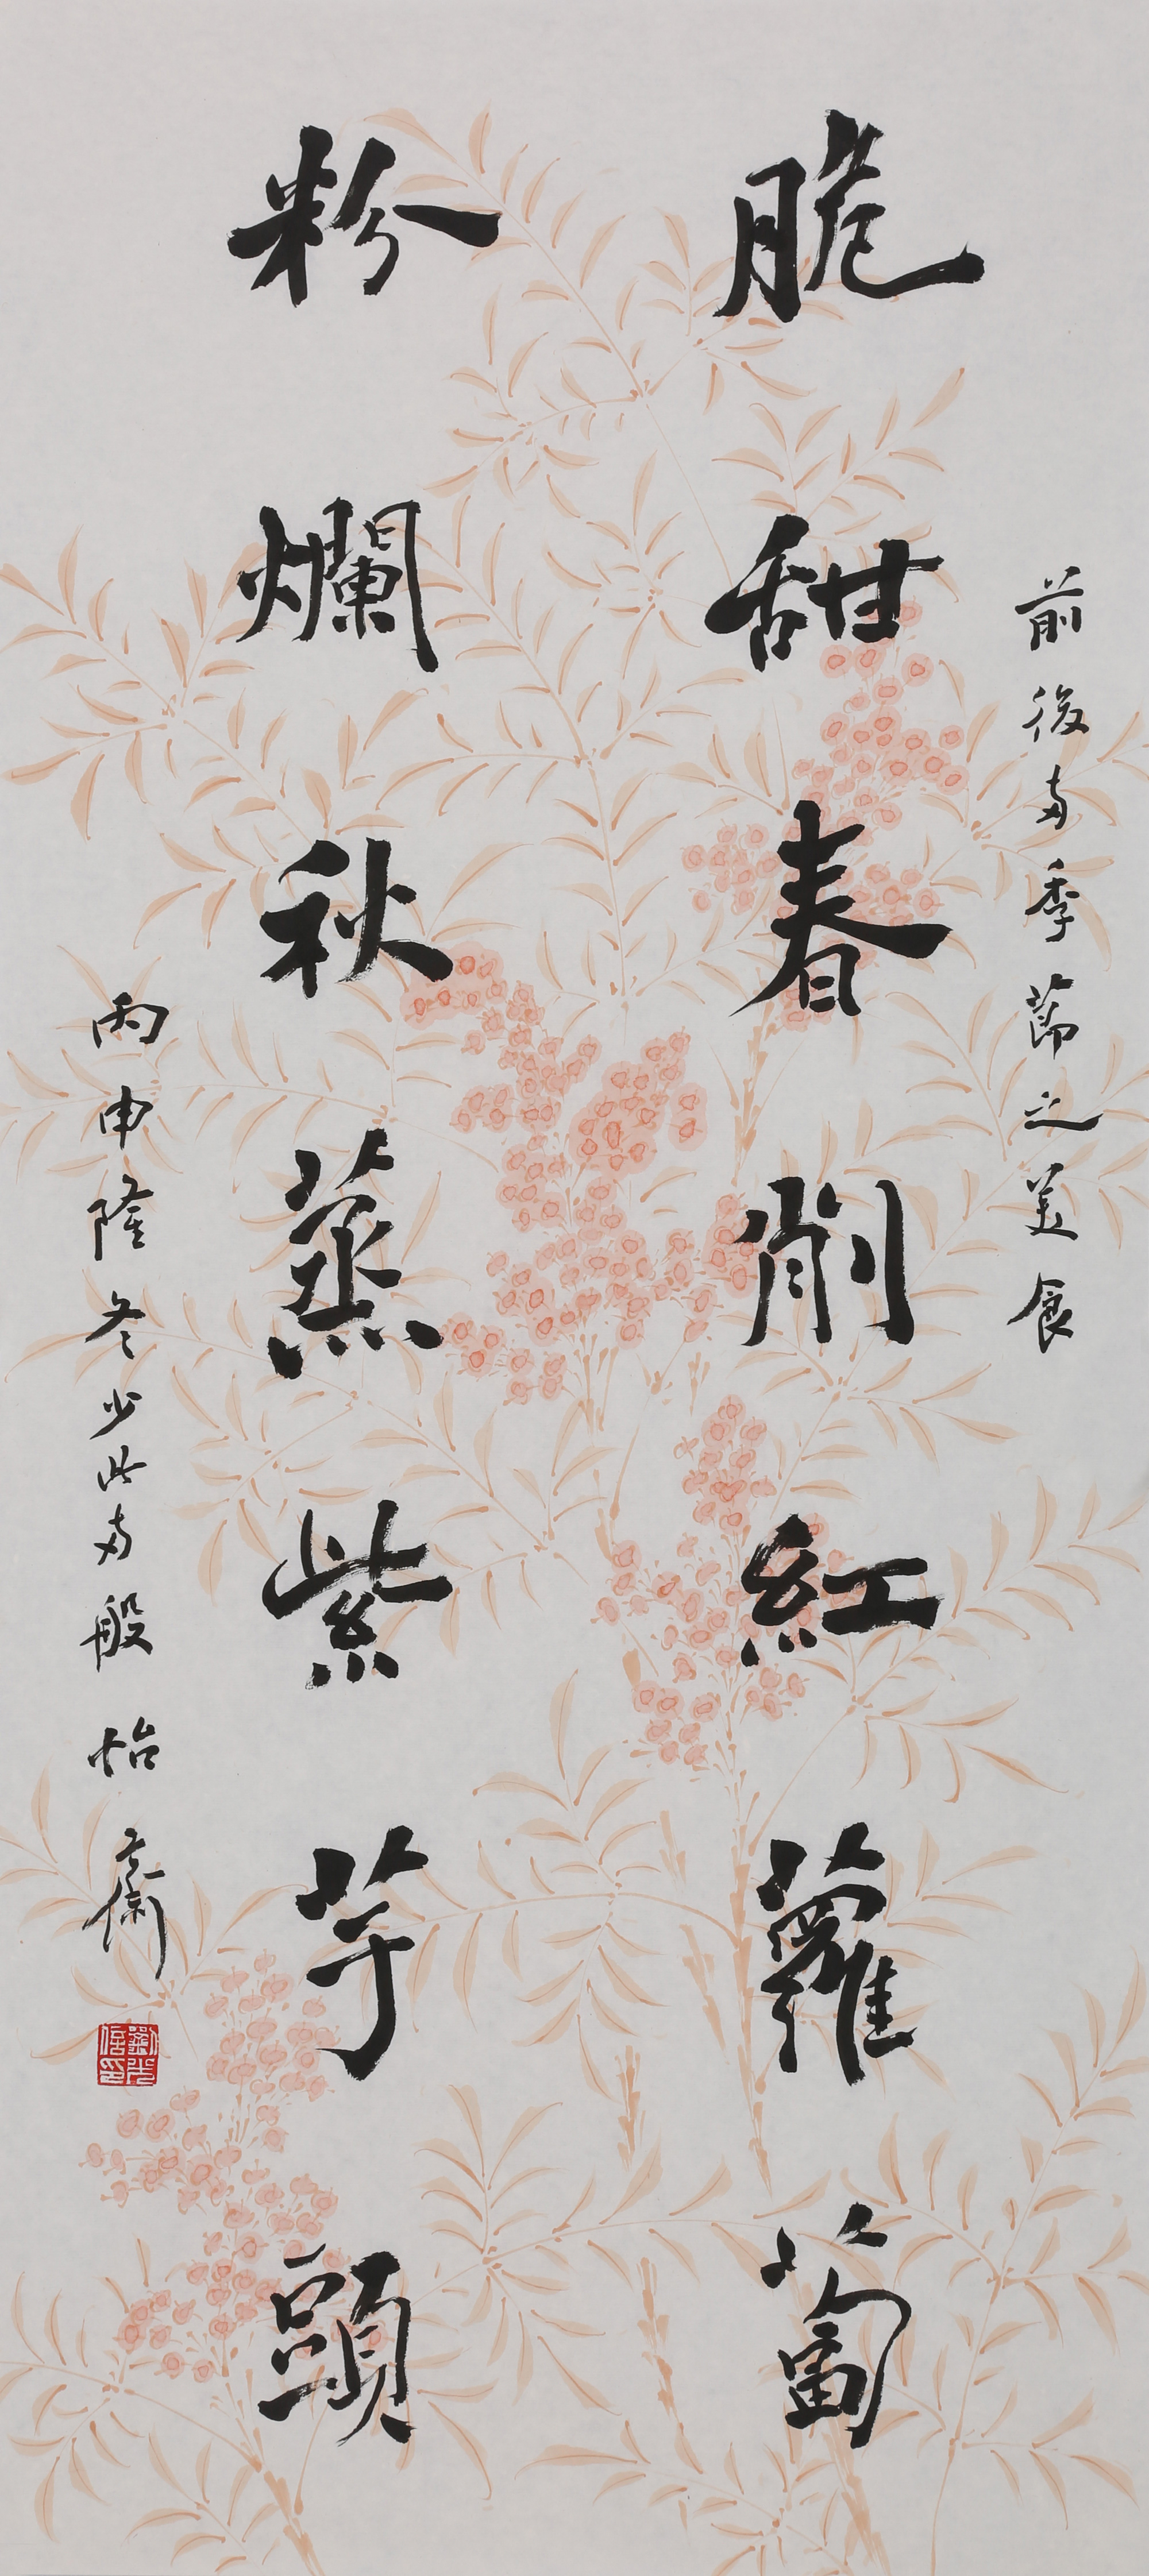 前後兩季節之美食
脆甜春削紅蘿蔔
粉爛秋蒸紫芋頭
丙申隆冬少此兩般怡齋